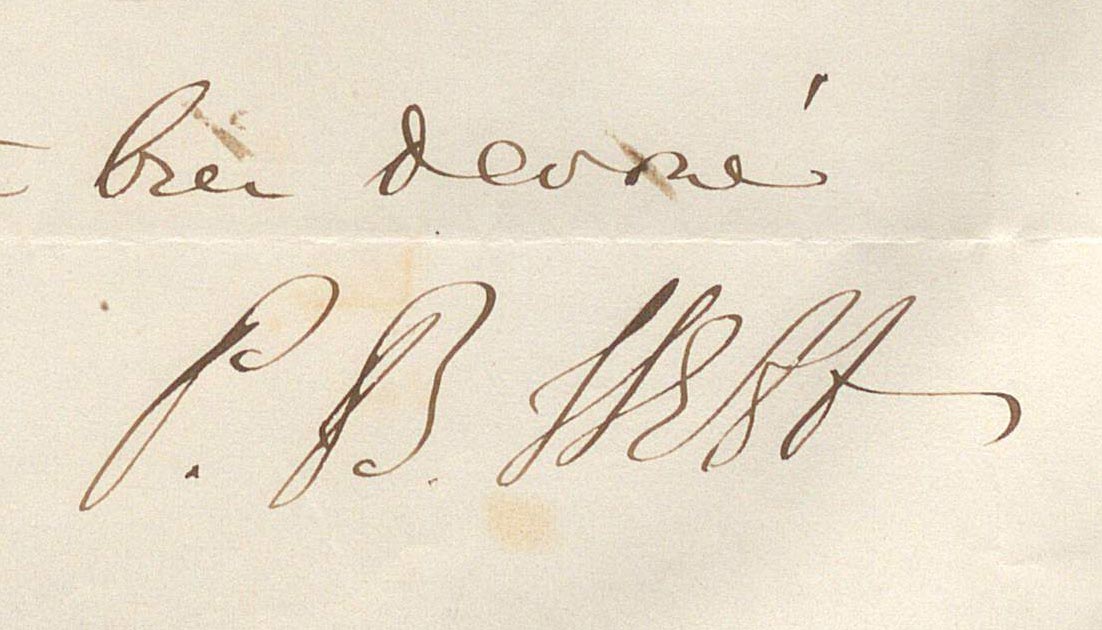 bien devoué
P. B. West